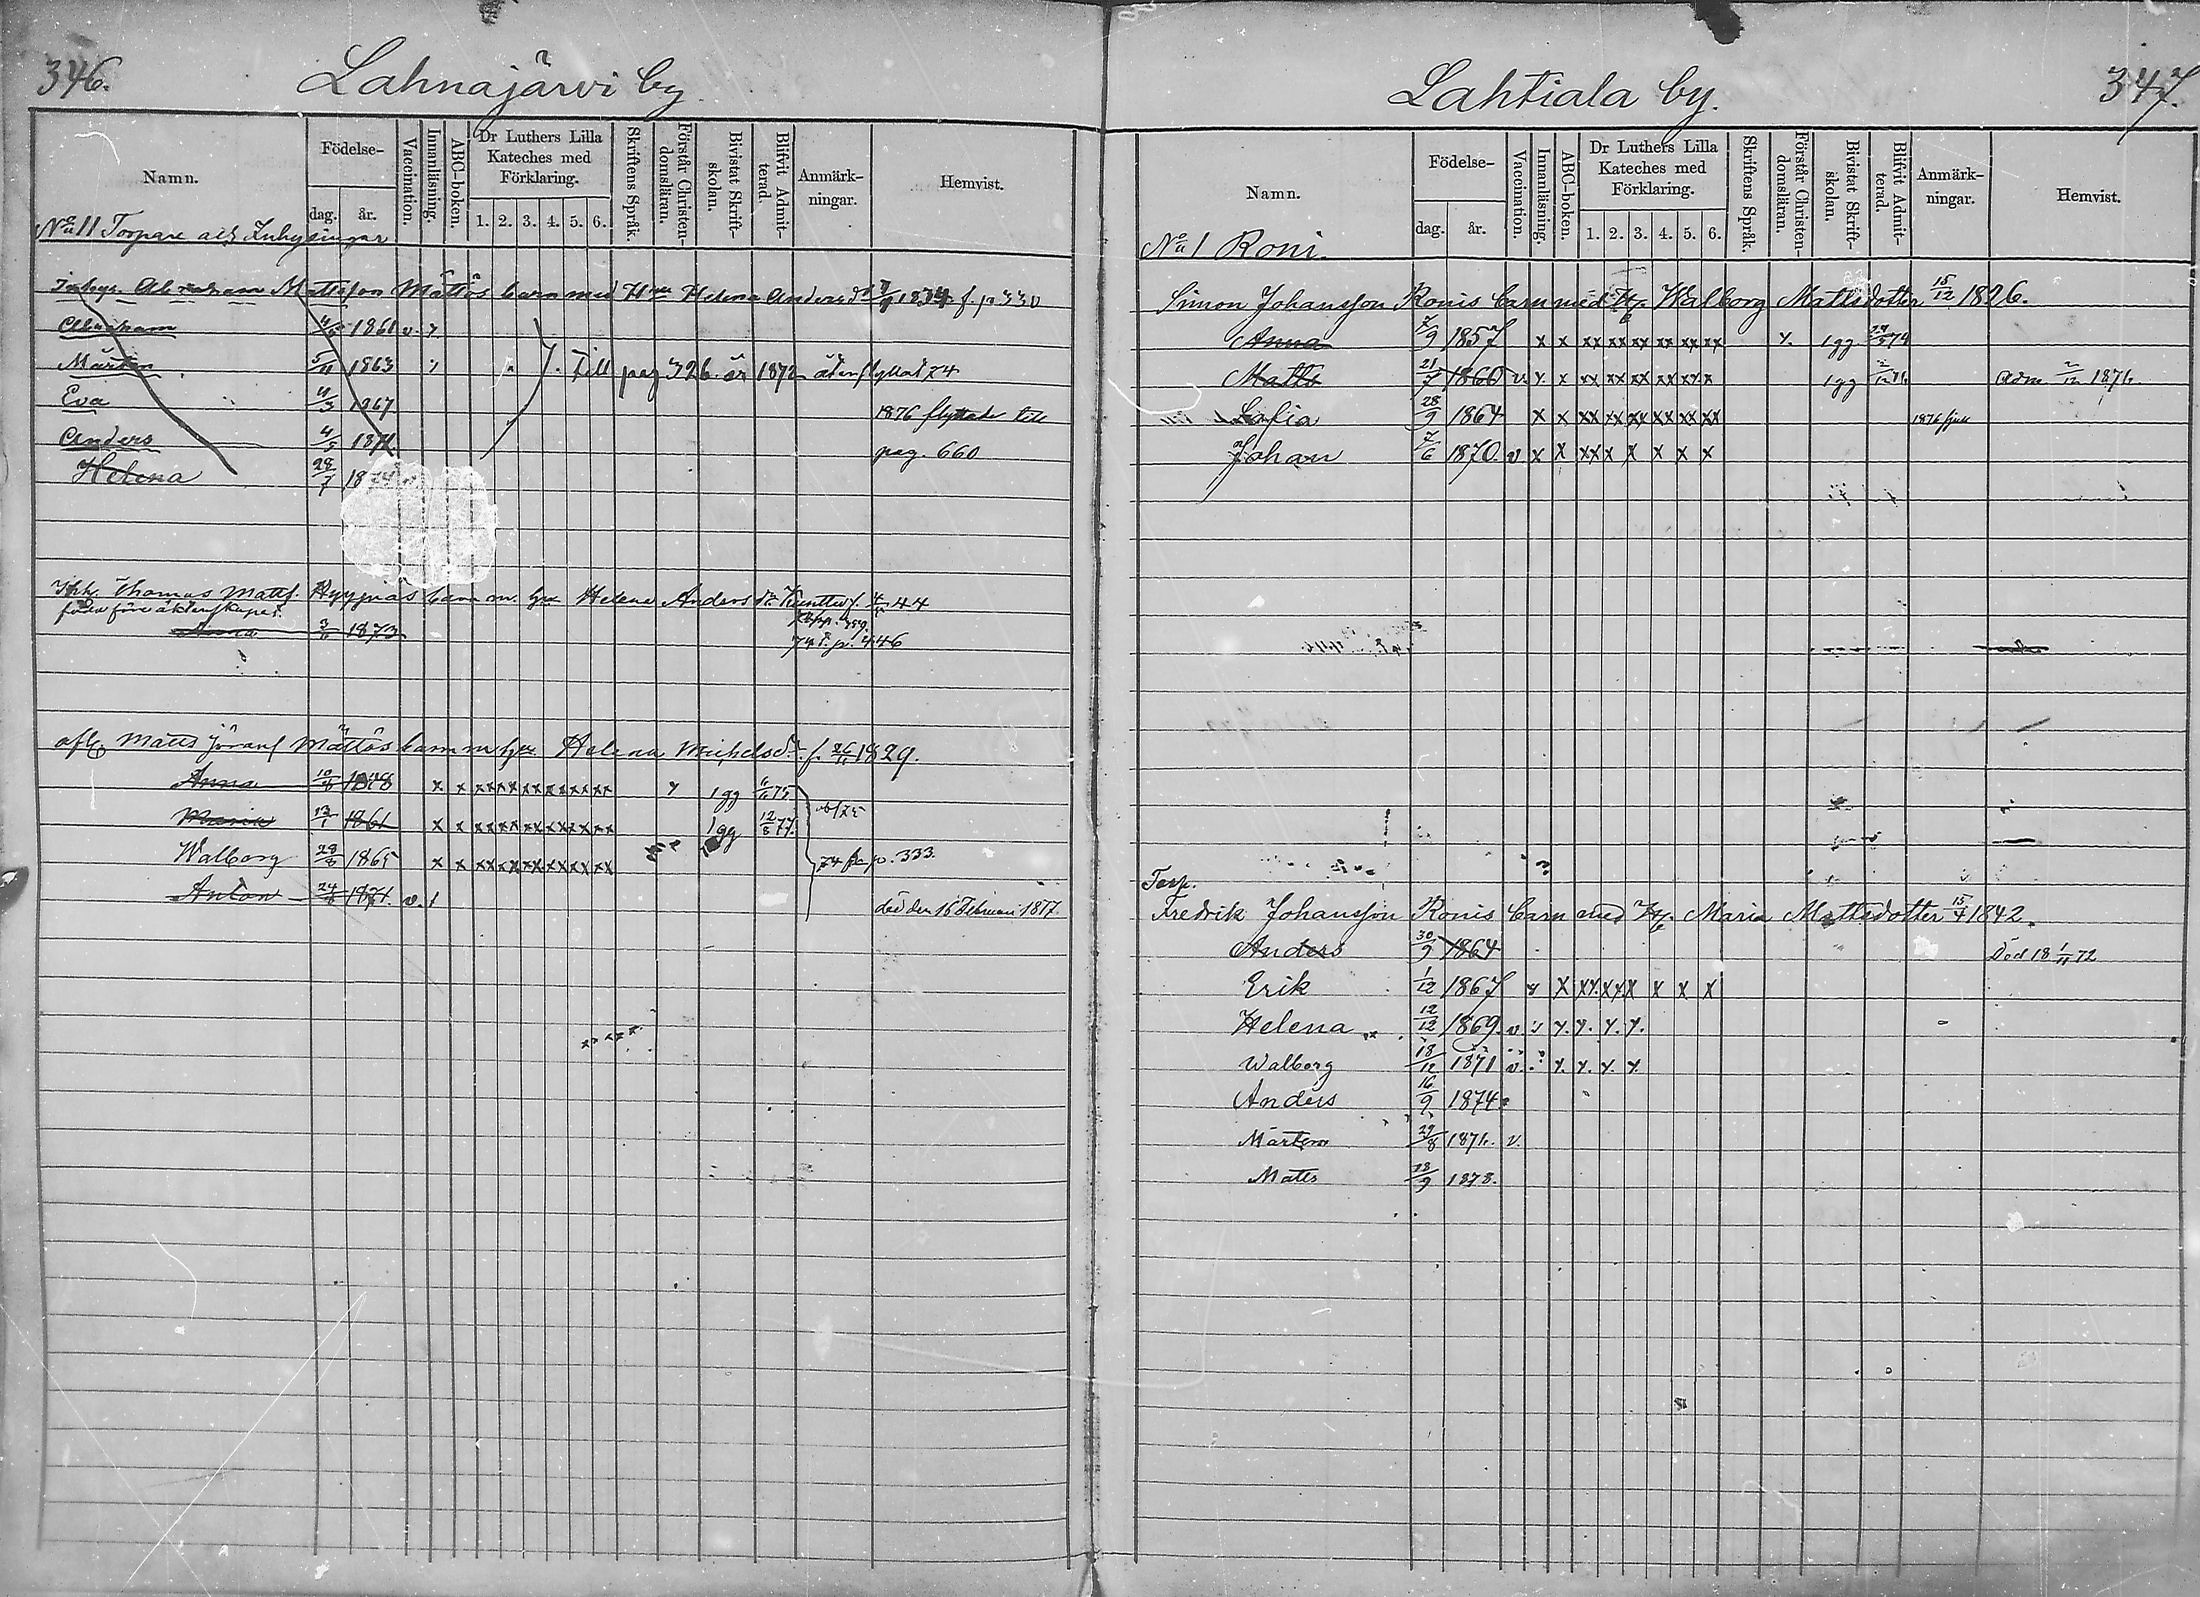 346.
Lahnajärvi by
Namn.
Födelse-
dag.
år.
Vaccination.
Innanläsning.
ABC-boken.
Dr Luthers Lilla
Kateches med
Förklaring.
1. 2. 3. 4. 5. 6.
Skriftens Språk.
Förstår Christen-
domsläran.
Bivistat Skrift-
skolan.
Blifvit Admit-
terad.
Anmärk-
ningar.
Hemvist.
No 11 Torpare och Inhysingar
Inhys. Abraham Mattsson Mattös barn med Hu Helena Anders dr 1834 f. p 330
Abraham 1861 v. x
Mårten 5/11 1863 Till pag 326 år 1872 återflyttat 74
Eva 4/3 1867 1876 flyttade till
Anders 4/5 1871 pag. 660
Helena 28/7 1874
Thomas Matts. Hyypiäs barn m. hu Helena Anders dr 44
född före äktenskapet
Anna 1873 74 f. p. 446
Matts Göranss Mattös barn m hu Helena Michels dr f. 1829.
Anna 10/8 1848 x x xx xx xx xx xx xx x 1 gg 6/6 75
Maria 13/1 1861 x x xx xx xx xx xx xx 1 gg 12/8 77
Walborg 28/8 1865 x x xx xx xx xx xx xx 74 fr p. 333.
Anton 1871. v. död den 15 Februari 1877.
347.
Lahtiala by.
Namn.
Födelse-
dag.
år.
Vaccination.
Innanläsning.
ABC-boken.
Dr Luthers Lilla
Kateches med
Förklaring.
1. 2. 3. 4. 5. 6.
Skriftens Språk.
Förstår Christen-
domsläran.
Bivistat Skrift-
skolan.
Blifvit Admit-
terad.
Anmärk-
ningar.
Hemvist.
No 1 Roni.
Simon Johansson Ronis barn med H. Walborg Mattsdotter 15/12 1826.
Anna 7/9 1857 x x xx xx xx xx xx xx x. 1 gg
Matts 21/7 1860 v. x. x xx xx xx xx xx x 1 gg adm 2/12 1876.
Sofia 28/9 1864 x x xx xx xx xx xx xx
Johan 7/6 1870. v x x xx x x x x x
Torp.
Fredrik Johansson Ronis barn med H. Maria Mattsdotter 15/4 1842.
Anders 30/9 1864 Död 18 1/11 72
Erik 1/12 1867 x x xx xx x x x x
Helena 12/12 1869. v x x. x. x. x.
Walborg 18/12 1871 v. x. x. x. x.
Anders 16/9 1874.
Mårten 29/8 1876. v.
Matts 18/9 1878.